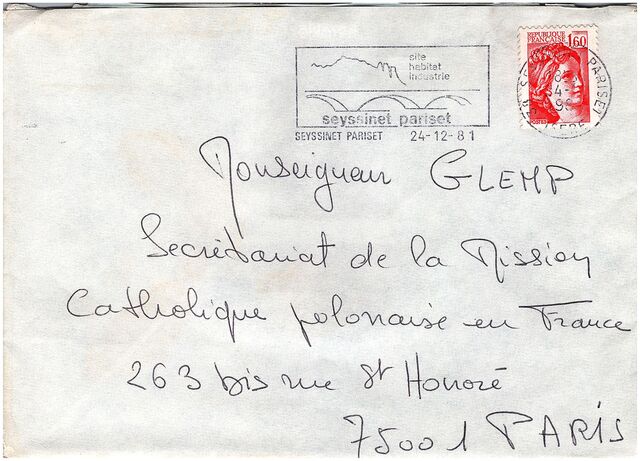 site
habitat
industrie
seyssinet pariset
SEYSSINET PARISET 24-12-81
REPUBLIQUE
FRANÇAISE 1,60
PARISET
ISERE
Monseigneur GLEMP
Secrétariat de la Mission
Catholique polonaise en France
263 bis rue St Honoré
75001 PARIS